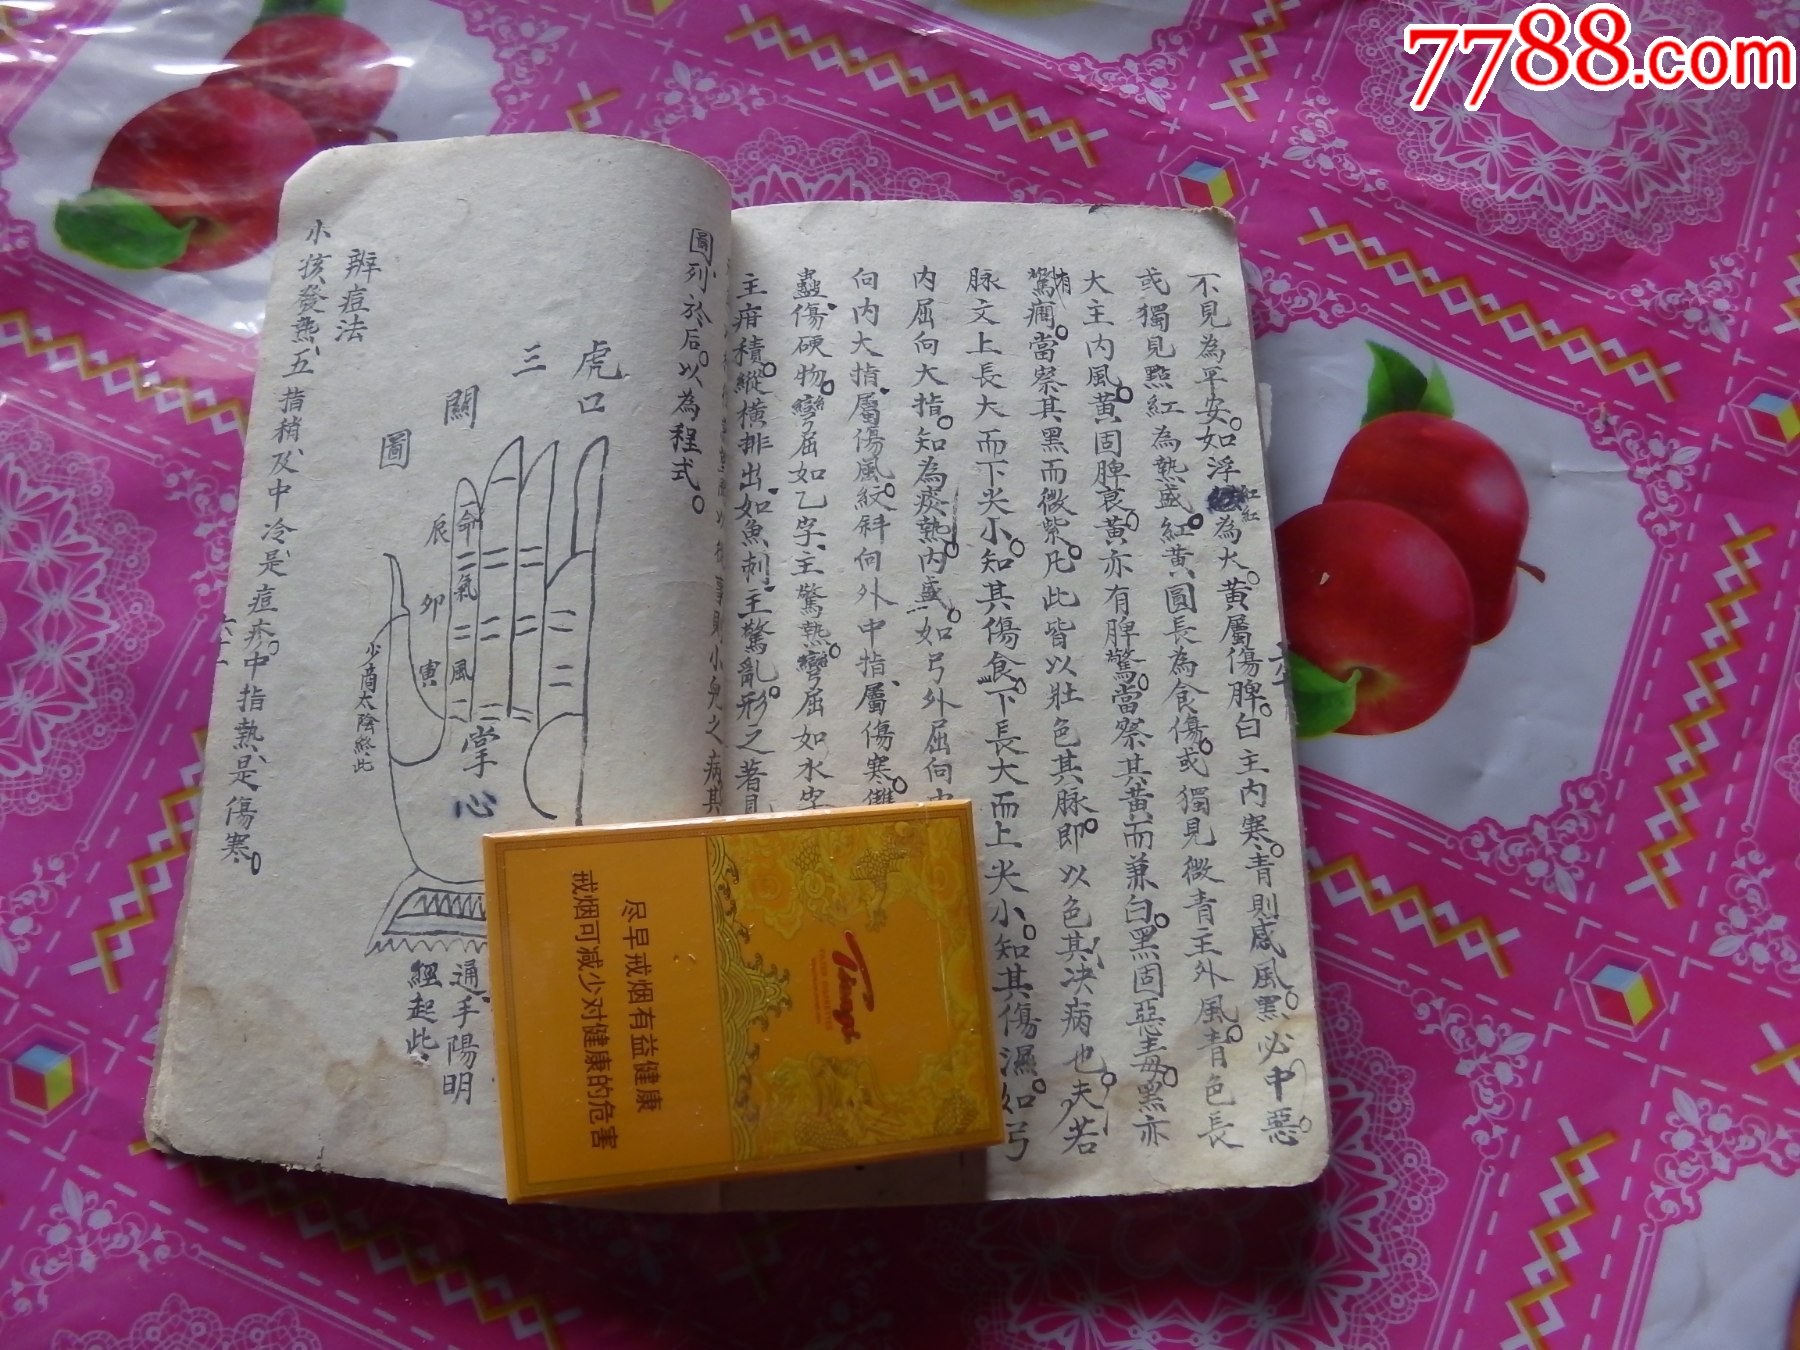 7788.com
不見為平安。如浮紅紅為火。黃屬傷脾。白主內寒。青則感風。黑必中惡。
或獨見點紅為熱盛。紅黃圓長為食傷。或獨見微青主外風。青色長
大主內風。黃固脾衰。黃亦有脾驚。當察其黃而兼白。黑固惡毒。黑亦
有驚癇。當察其黑而微紫。凡此皆以壯色其脉即。以色其決病也。夫若
脉文上長大而下尖小。知其傷食。下長大而上尖小。知其傷濕。如弓
內屈向大指。知為痰熱內盛。如弓外屈向
向內大指、屬傷風。紋斜向外中指、屬傷寒。
蟲傷硬物。彎屈如乙字、主驚熱。彎屈如水字
主疳積。縱橫排出、如魚刺、主驚亂形之著
事則小兒之病其
圖列於后。以為程式。
虎口
三
關
圖
命
氣
風
辰
卯
寅
掌心
少商太陰終此
通手陽明
經起此、
辨痘法
小孩發热、五指稍及中冷、是痘疹。中指熱、是傷寒。
尽早戒烟有益健康
戒烟可减少对健康的危害